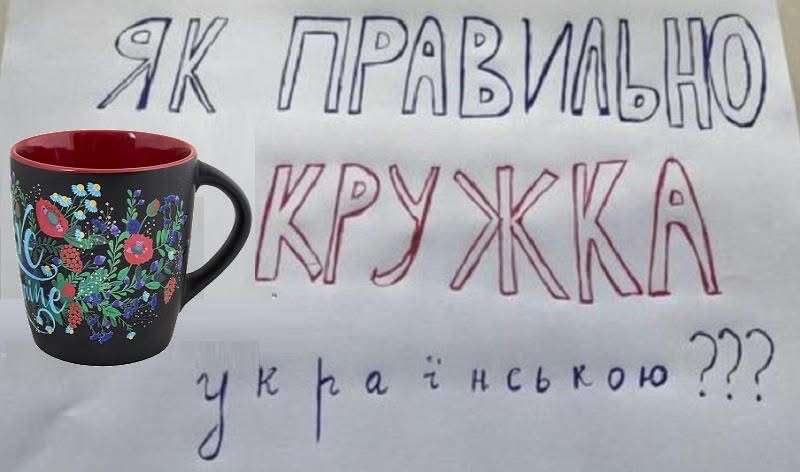 ЯК ПРАВИЛЬНО
КРУЖКА
українською???